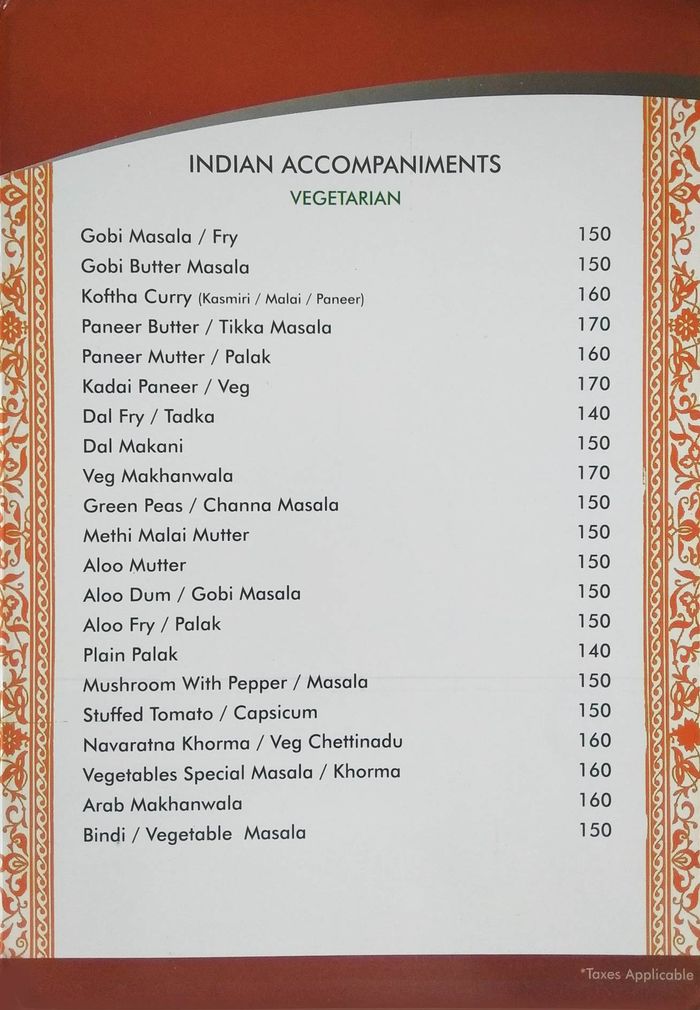 INDIAN ACCOMPANIMENTS
VEGETARIAN
Gobi Masala / Fry 150
Gobi Butter Masala 150
Koftha Curry (Kasmiri / Malai / Paneer) 160
Paneer Butter / Tikka Masala 170
Paneer Mutter / Palak 160
Kadai Paneer / Veg 170
Dal Fry / Tadka 140
Dal Makani 150
Veg Makhanwala 170
Green Peas / Channa Masala 150
Methi Malai Mutter 150
Aloo Mutter 150
Aloo Dum / Gobi Masala 150
Aloo Fry / Palak 150
Plain Palak 140
Mushroom With Pepper / Masala 150
Stuffed Tomato / Capsicum 150
Navaratna Khorma / Veg Chettinadu 160
Vegetables Special Masala / Khorma 160
Arab Makhanwala 160
Bindi / Vegetable Masala 150
*Taxes Applicable